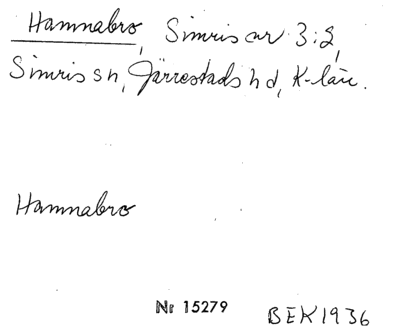 Hamnabro, Simris nr 3:2,
Simris sn, Järrestads hd, K-län.
Hamnabro
Nr 15279 BEK 1936